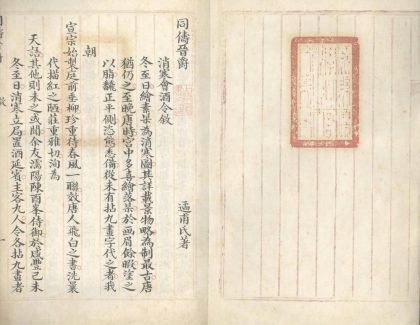 同儔晉爵
甫氏著
消寒會酒令敘
冬至日繪素某為消寒圖其詳載景物略為制最古唐
猶仍之至晚唐時宮中多喜繪落某於畫眉餘暇塗之
以脂正平側悉備從未有拈九畫字代之者我
朝
宣宗始製庭前垂柳珍重待春風一聯效唐人飛白之書洗累
代描紅之陋莊重雅切洵為
天語其他則未之或聞余友濡陽陳酉峯侍御於咸豐己未
冬至日消寒立局置酒延賓主客九人令各拈九畫者